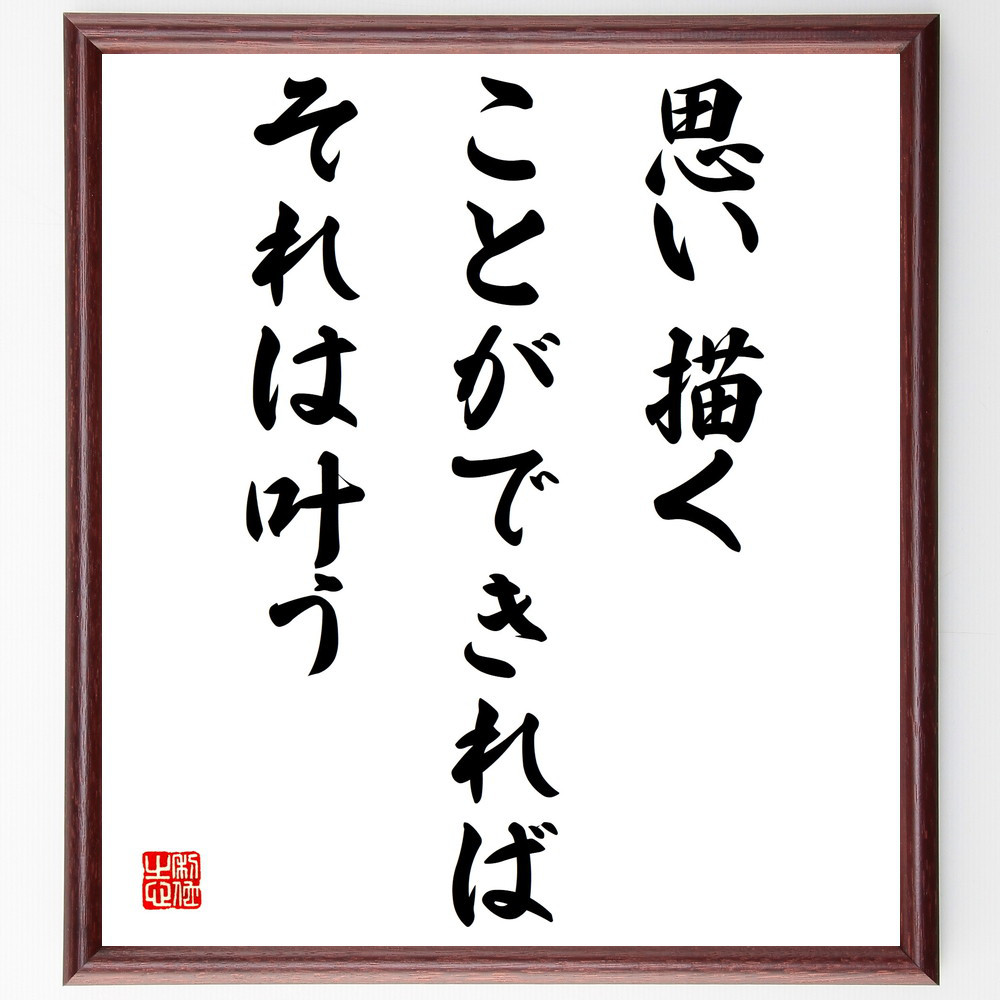 思い描く
ことができれば
それは叶う